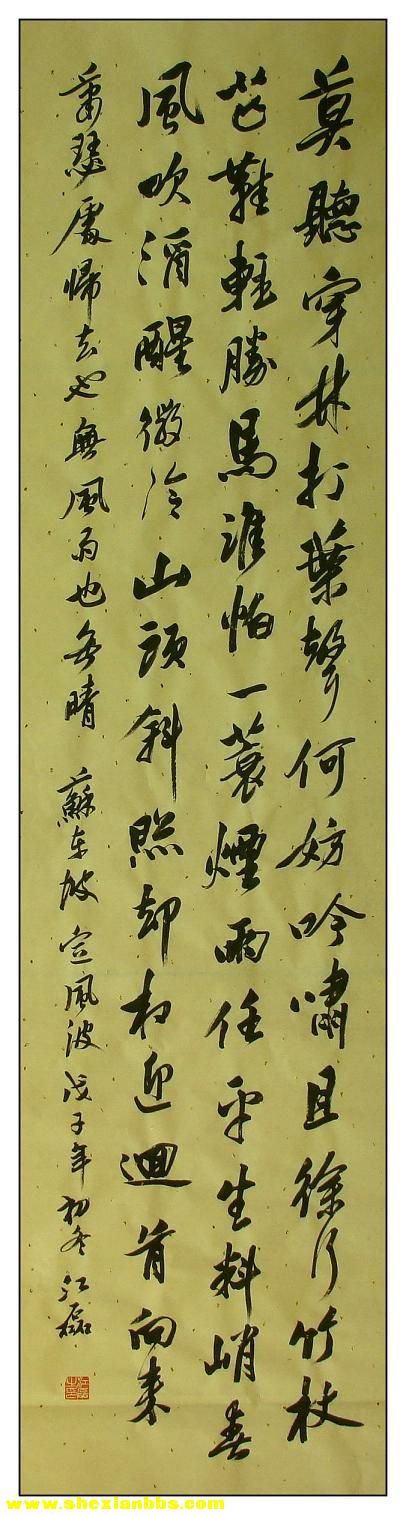 莫聽穿林打葉聲何妨吟嘯且徐行竹杖
芒鞋輕勝馬誰怕一蓑煙雨任平生料峭春
風吹酒醒微冷山頭斜照却相迎迴首向来
蕭瑟處歸去也無風雨也無晴 蘇东坡定風波戊子年初冬江磊
www.shexianbbs.com